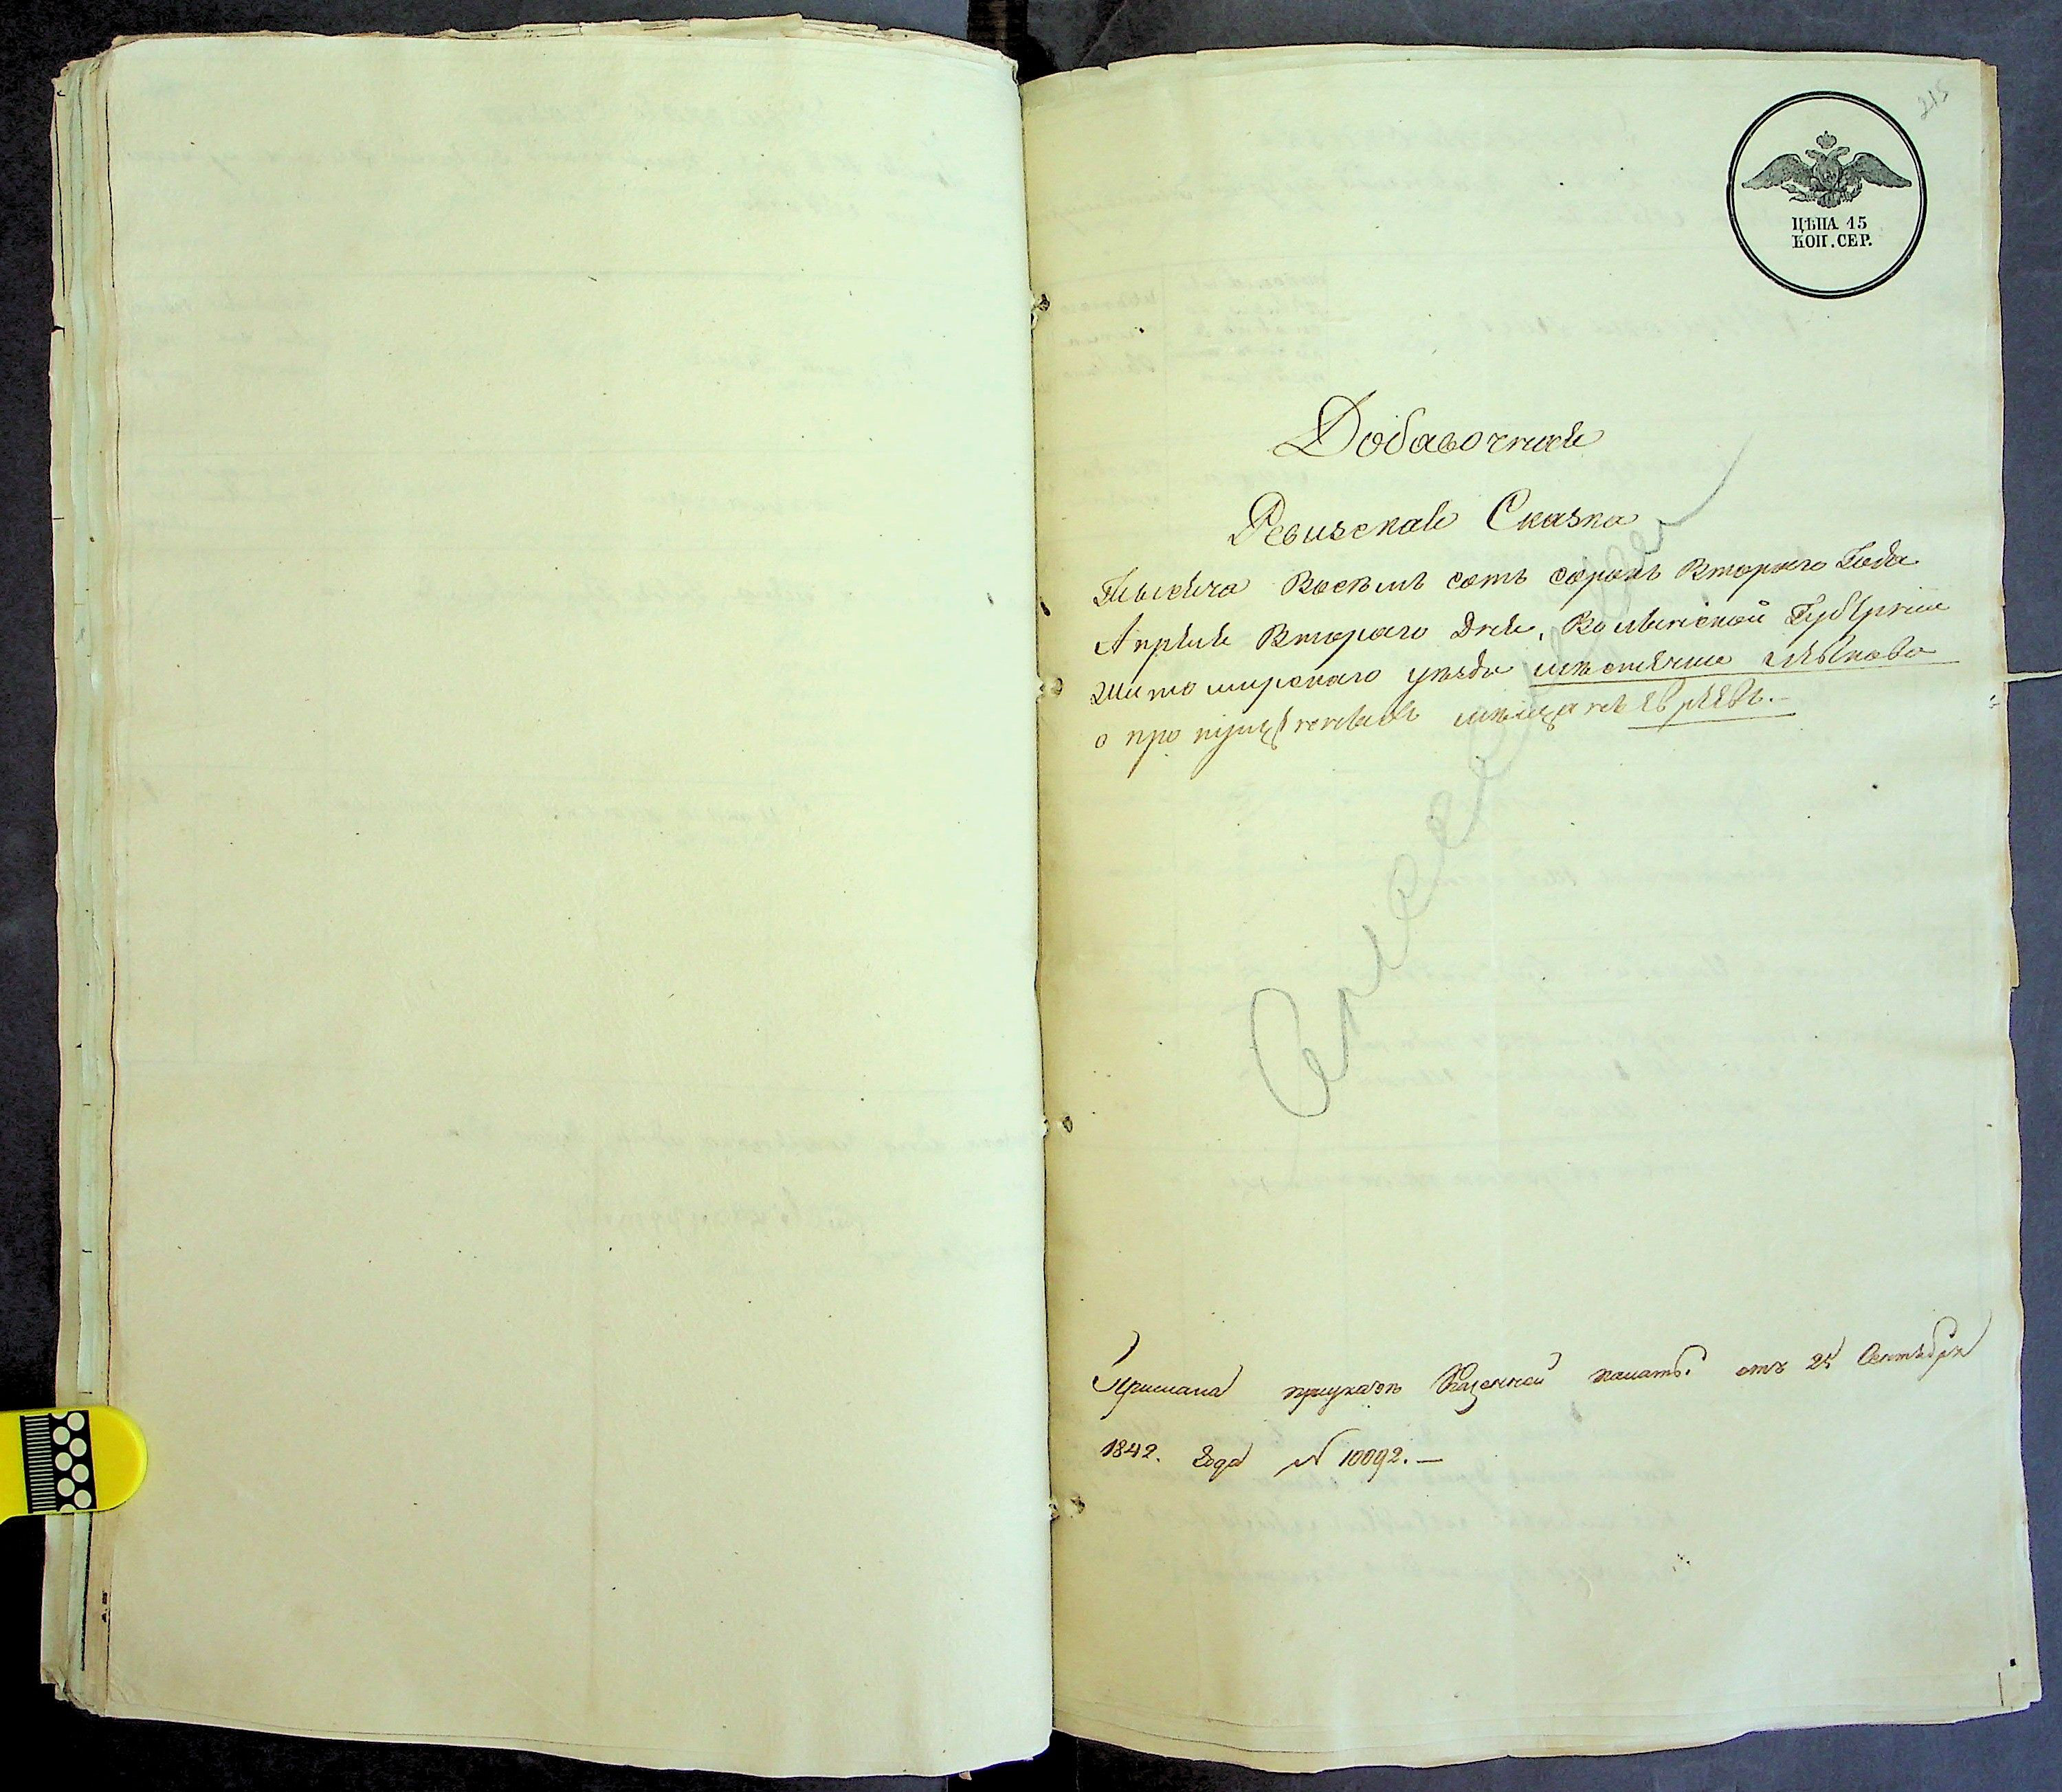 215
ЦѢНА 15
КОП. СЕР.
Добавочная
Ревизская Сказка
Тысеча Восемь сотъ сорокъ Втораго Года
Апреля Втораго Дня, Волынской Губернии
Житомирскаго уезда местечка
о пропущенныхъ мещанъ Евреевъ.–
Прислана при указе Казенной палаты отъ 25 Сентября
1842. года № 10092.–